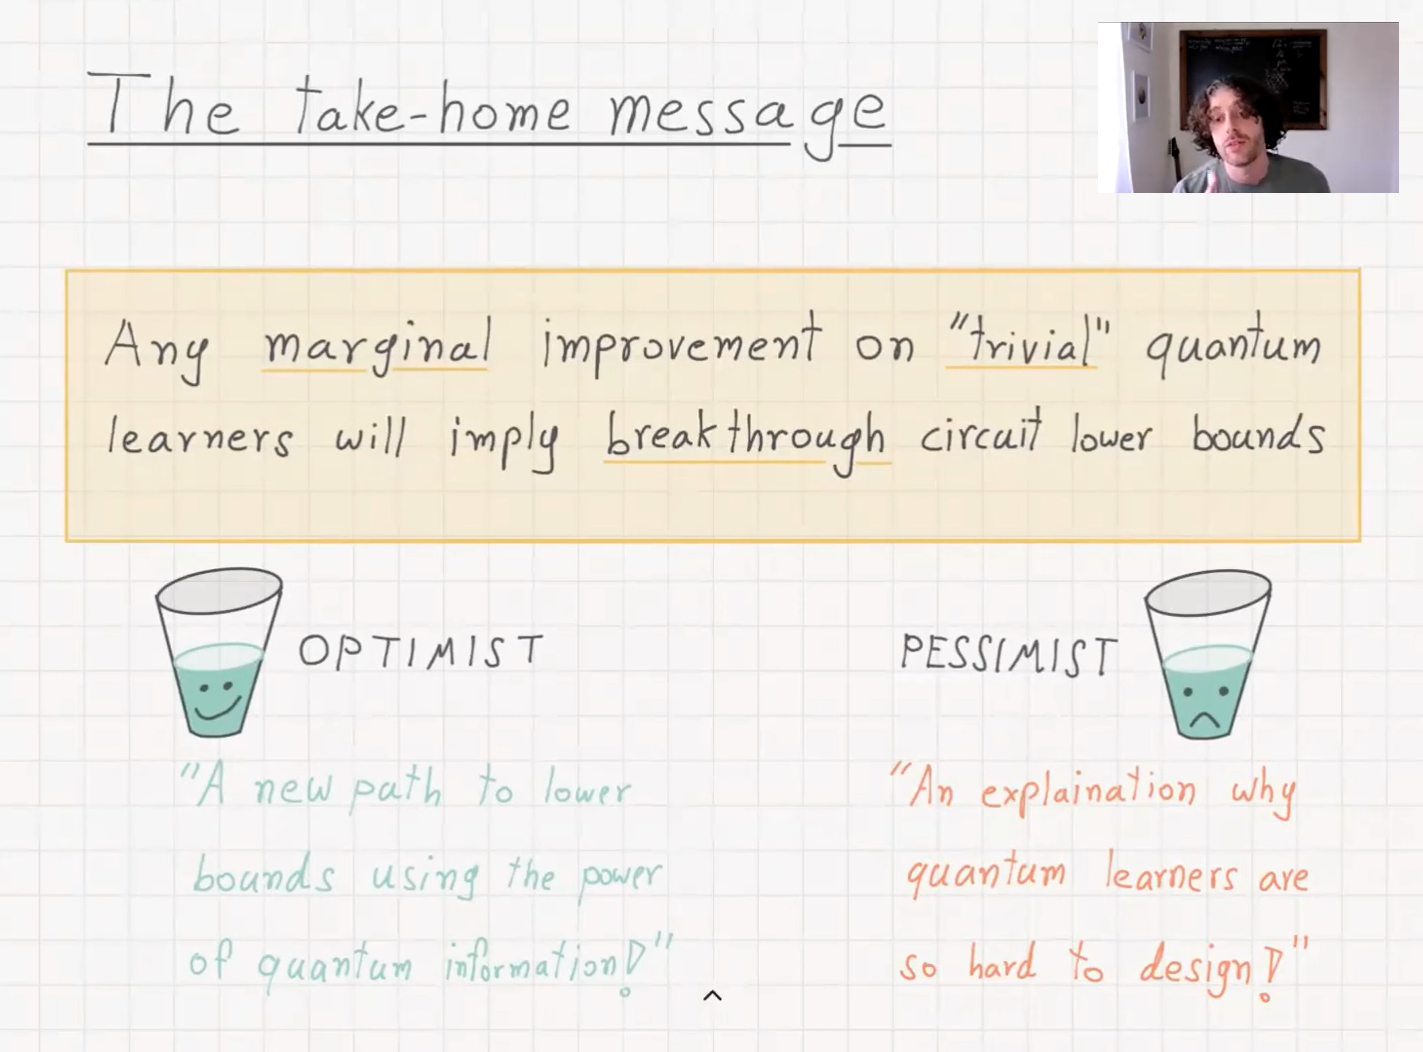 The take-home message
Any marginal improvement on "trivial" quantum
learners will imply breakthrough circuit lower bounds
OPTIMIST
"A new path to lower
bounds using the power
of quantum information!"
PESSIMIST
"An explaination why
quantum learners are
so hard to design!"